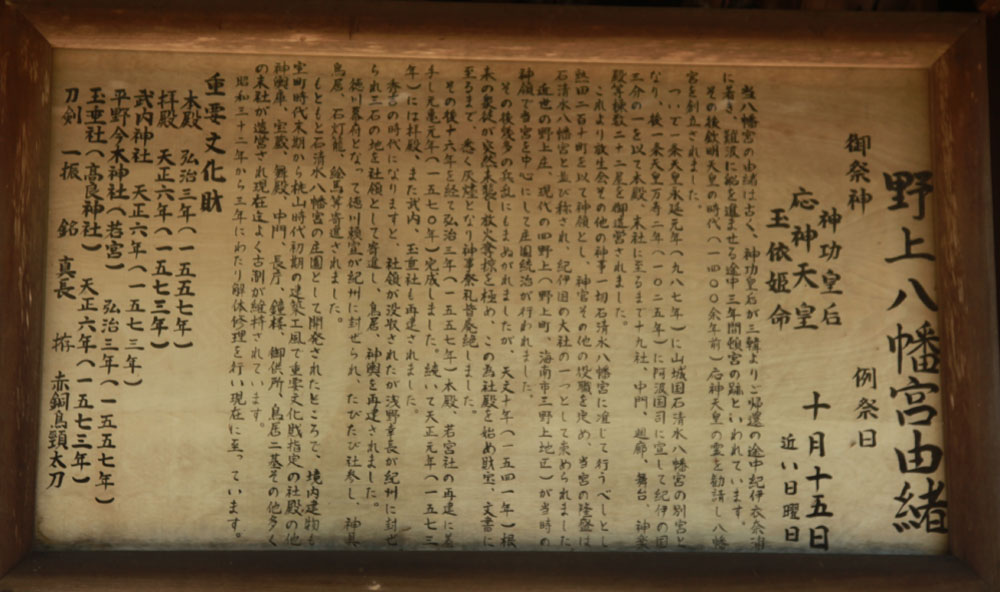 野上八幡宮由緒
御祭神
神功皇后
応神天皇
玉依姫命
例祭日
十月十五日
近い日曜日
当八幡宮の由緒は古く、神功皇后が三韓よりご帰還の途中紀伊衣奈浦
に着き、難波に船を進ませる途中三年間頓宮の跡といわれています。
その後欽明天皇の時代(一四〇〇余年前)応神天皇の霊を勧請し八幡
宮を創立されました。
ついで一条天皇永延元年(九八七年)に山城国石清水八幡宮の別宮と
なり、後一条天皇万寿二年(一〇二五年)に阿波国司に宣して紀伊の国
三分の一を以て本殿、末社に至るまで十九社、中門、廻廊、舞台、神楽
殿等棟数二十二屋を御造営されました。
これより放生会その他の神事一切石清水八幡宮に准して行うべしとし
熟田二百十町を以て神領とし、神宮その他の役職を定め、当宮の隆盛は
石清水八幡宮と並び称され、紀伊国の大社の一つとして崇められました
近世の野上庄、現代の四野上(野上町、海南市三野上地区)が当時の
神領で当宮を中心にして庄園統治が行われました。
その後幾多の兵乱にもまぬがれましたが、天文十年(一五四一年)根
来の衆徒が突然来襲し放火掠奪を極め、この為社殿を始め財宝、文書に
至るまで、悉く灰燼となり神事祭礼皆廃絶しました。
その後十六年を経て弘治三年(一五五七年)本殿、若宮社の再建に着
手し元亀元年(一五七〇年)完成しました。続いて天正元年(一五七三
年)には拝殿、また武内、玉垂社も再建されました。
秀吉の時代になりますと、社領が没収されたが浅野幸長が紀州に封せ
られ三石の地を社領として寄進し、鳥居、神輿を再建されました。
徳川幕府となって徳川頼宣が紀州に封せられ、たびたび社参し、神具
鳥居、石灯籠、絵馬等寄進されました。
もともと石清水八幡宮の庄園として開発されたところで、境内建物も
室町時代末期から桃山時代初期の建築工風で重要文化財指定の社殿の他
神輿庫、宝蔵、舞殿、中門、長庁、鐘楼、御供所、鳥居二基その他多く
の末社が造営され現在迄よく古制が維持されています。
昭和三十二年から三年にわたり解体修理を行い現在に至っています。
重要文化財
本殿 弘治三年(一五五七年)
拝殿 天正元年(一五七三年)
武内神社 天正六年(一五七三年)
平野今木神社(若宮) 弘治三年(一五五七年)
玉垂社(高良神社) 天正六年(一五七三年)
刀剣 一振 銘 真長 拵 赤銅鳥頸太刀